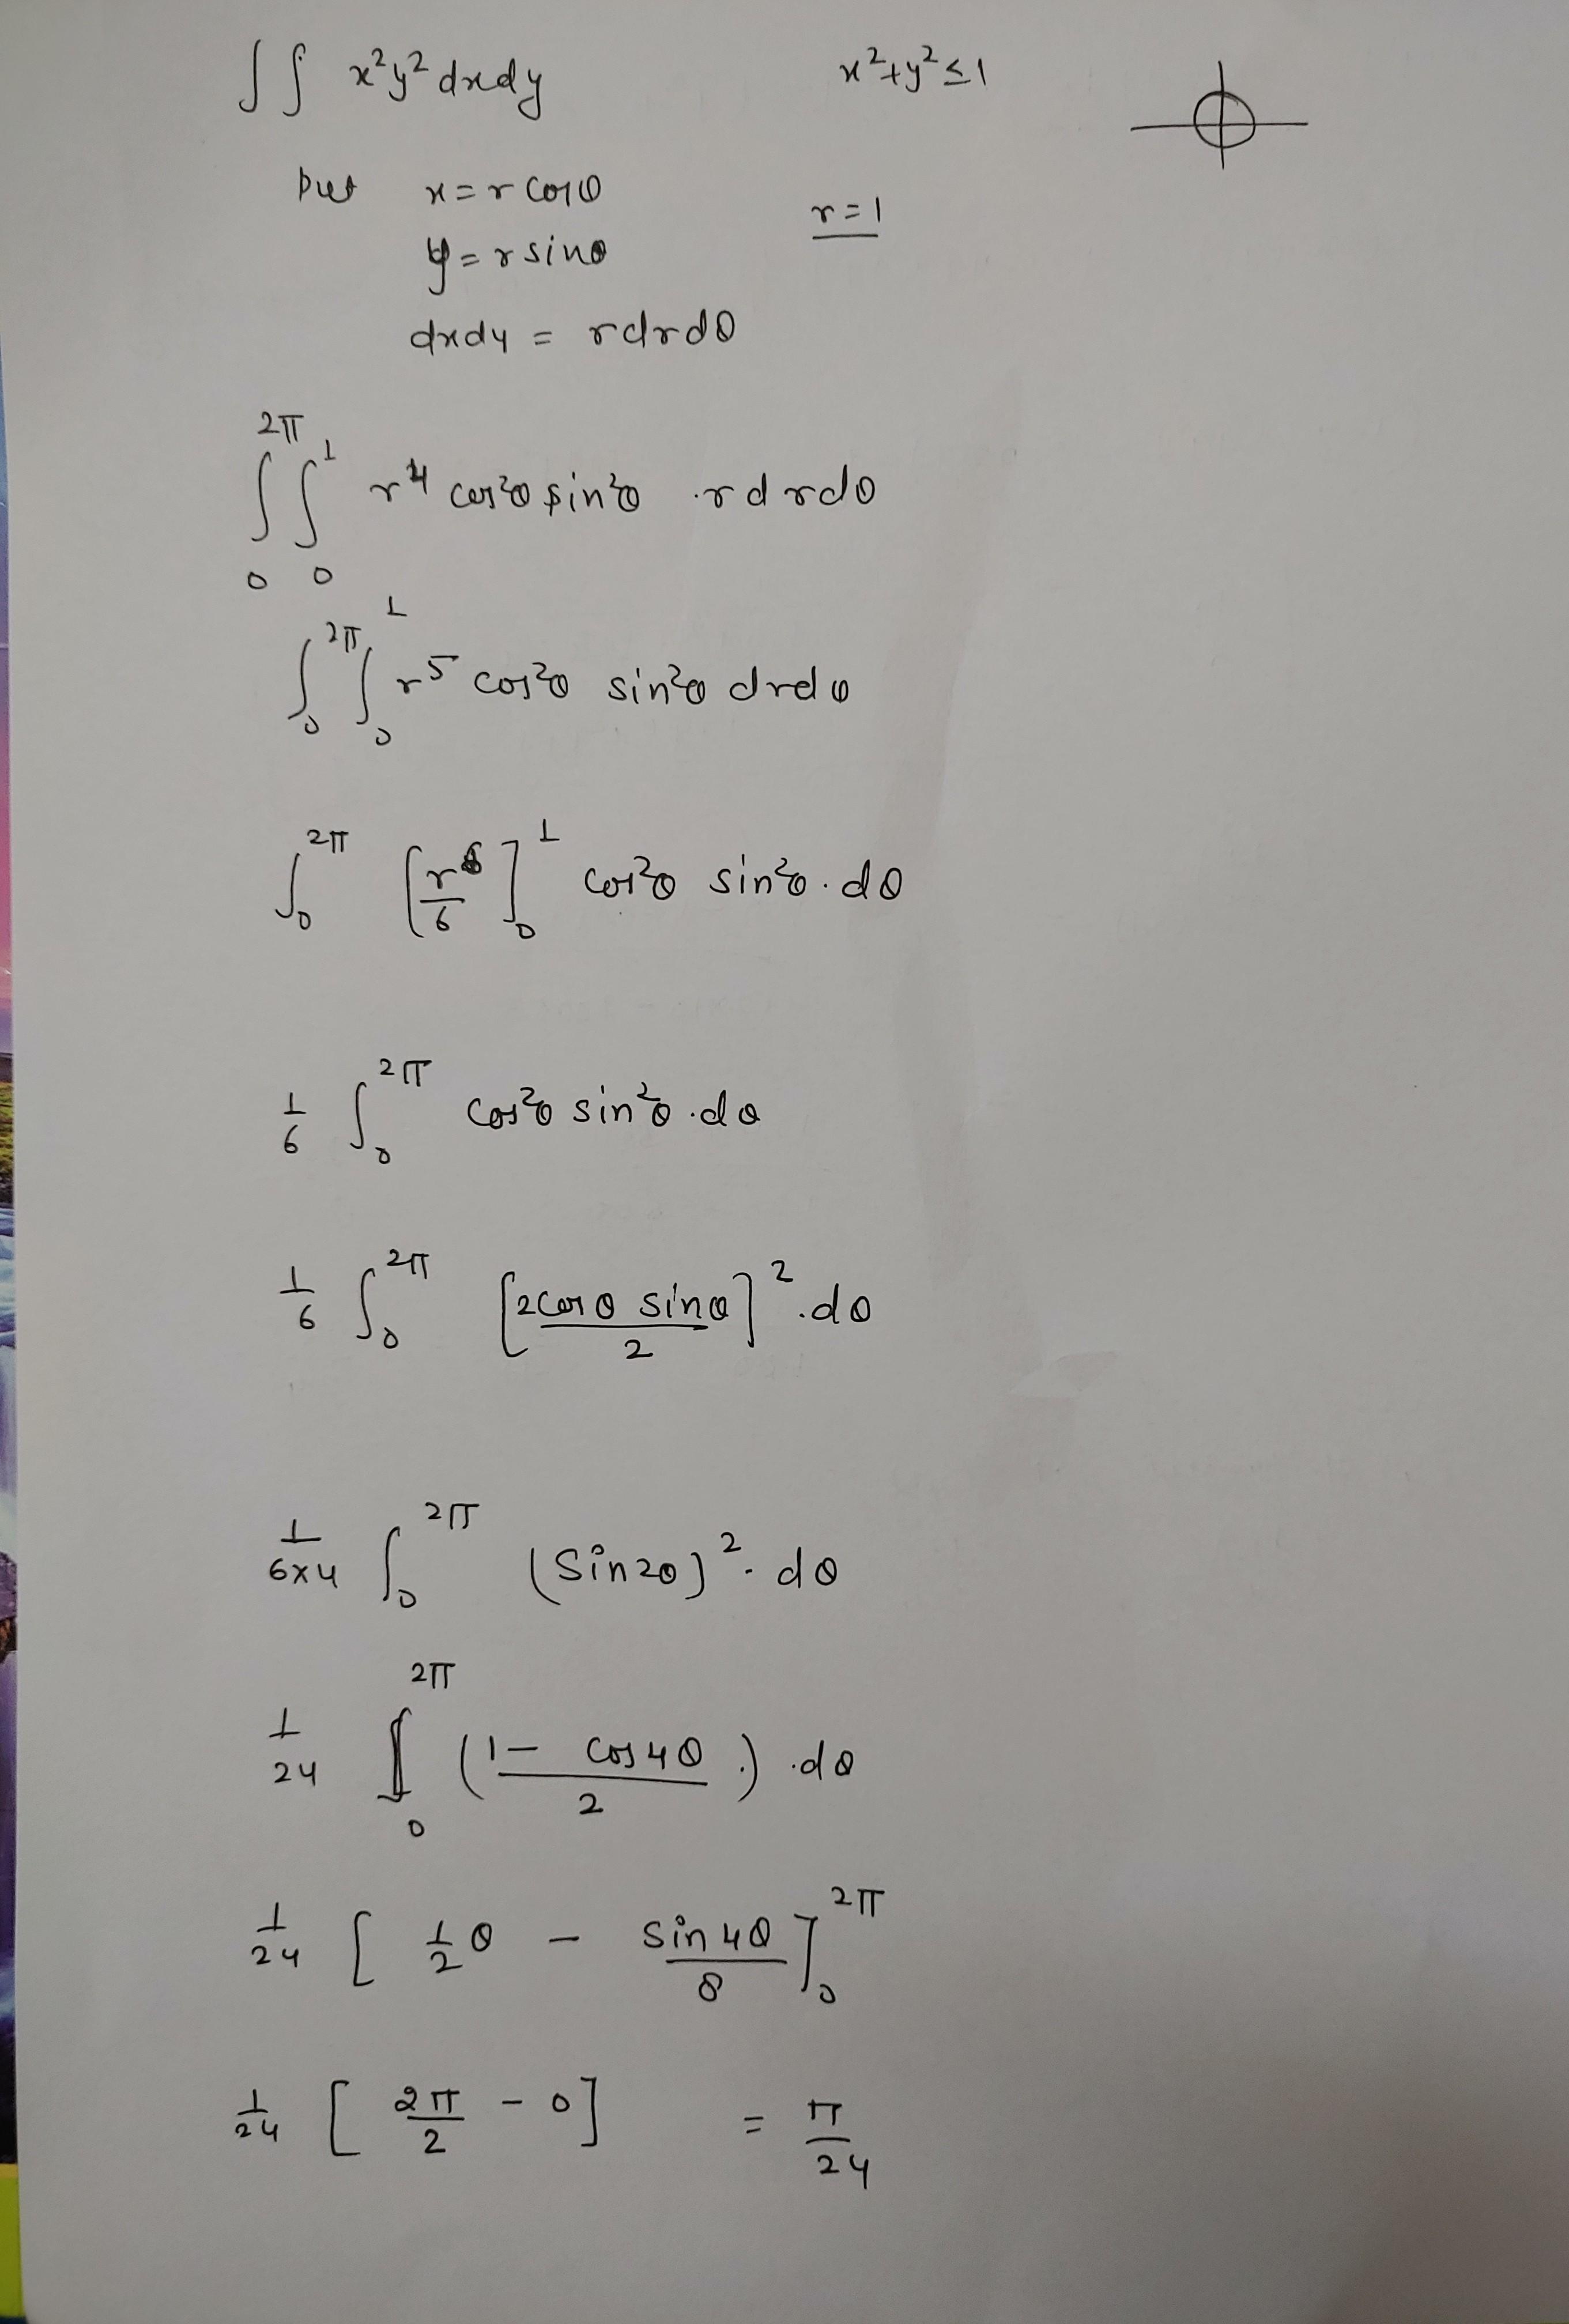 ∫∫ x²y² dxdy    x²+y² ≤ 1
put x = r cosθ
r = 1
y = r sinθ
dxdy = r dr dθ
∫₀^2π ∫₀^1 r⁴ cos²θ sin²θ . r dr dθ
∫₀^2π ∫₀^1 r⁵ cos²θ sin²θ dr dθ
∫₀^2π [r⁶/6]₀^1 cos²θ sin²θ . dθ
1/6 ∫₀^2π cos²θ sin²θ . dθ
1/6 ∫₀^2π [2cosθ sinθ/2]² . dθ
1/6×4 ∫₀^2π (sin2θ)² . dθ
1/24 ∫₀^2π (1 - cos4θ/2) . dθ
1/24 [1/2 θ - sin4θ/8]₀^2π
1/24 [2π/2 - 0] = π/24